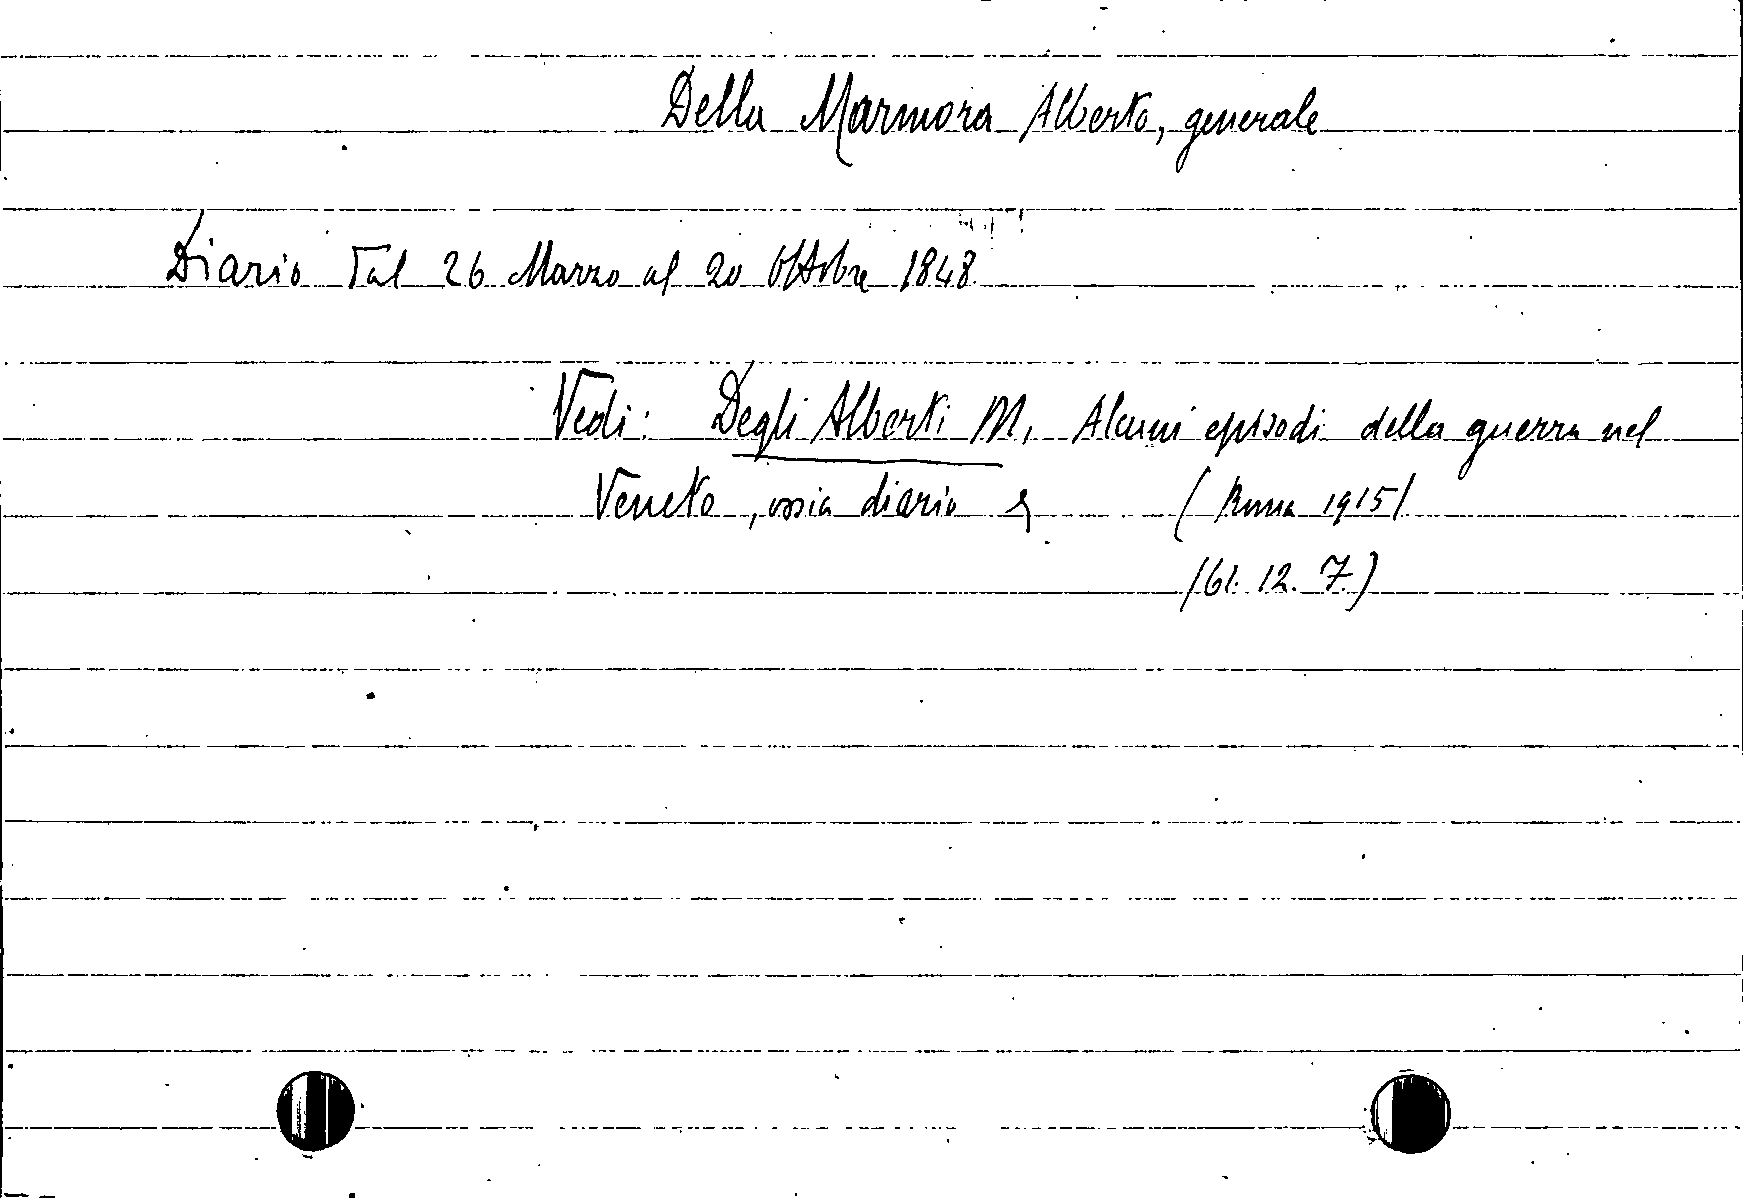 Della Marmora Alberto, generale
Diario dal 26 Marzo al 20 Ottobre 1848.
Vedi: Degli Alberti M, Alcuni episodi della guerra nel
Veneto, ossia diario (Roma 1915)
(61. 12. 7.)